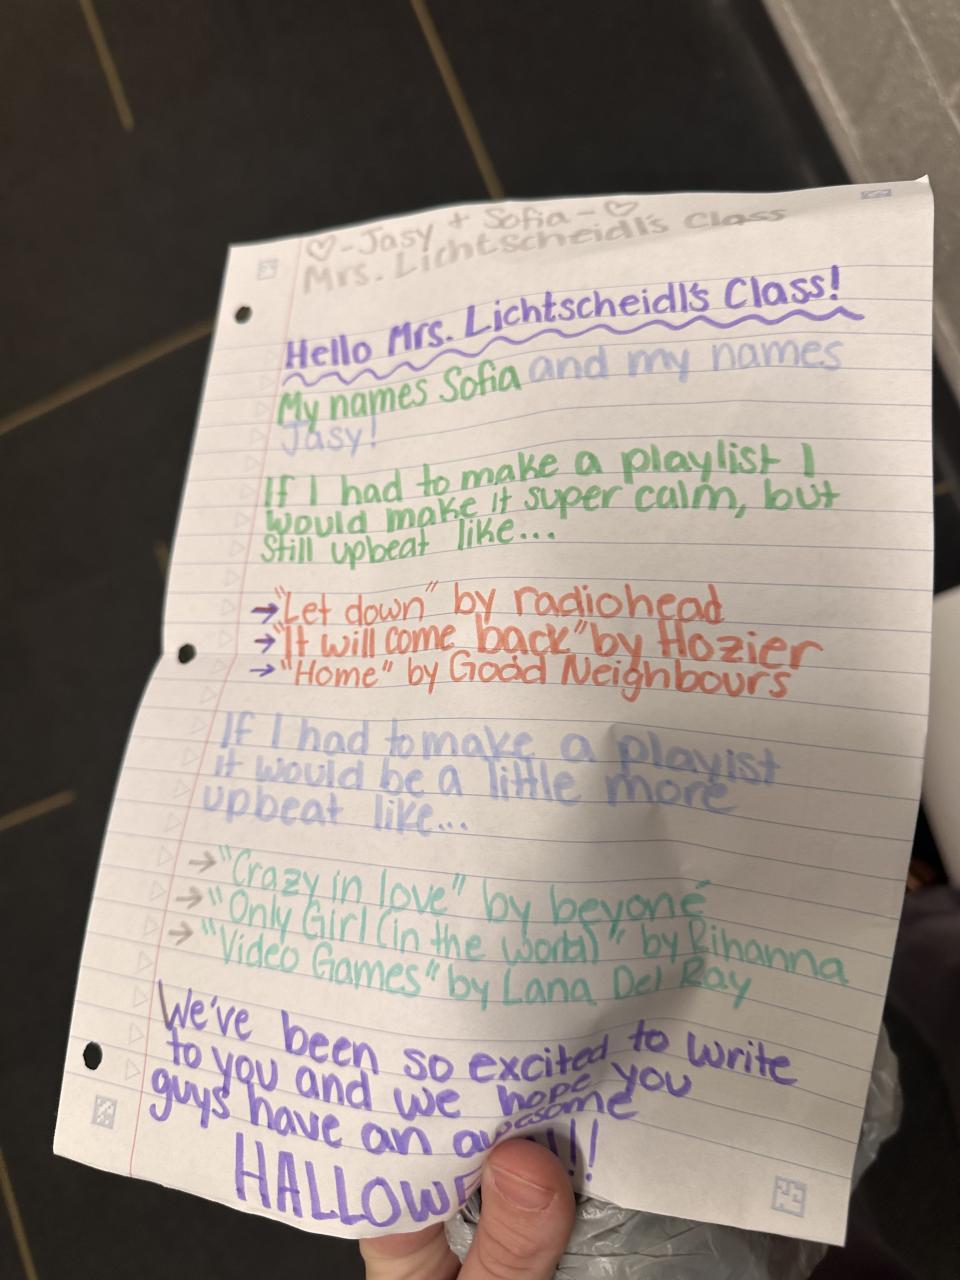 ♡-Jasy + Sofia-♡
Mrs. Lichtscheidl's Class
Hello Mrs. Lichtscheidl's Class!
My names Sofia and my names
Jasy!
If I had to make a playlist I
would make it super calm, but
still upbeat like...
→"Let down" by radiohead
→"It will come back" by Hozier
→"Home" by Good Neighbours
If I had to make a playist
it would be a little more
upbeat like...
→"Crazy in love" by beyoné
→"Only Girl (in the World)" by Rihanna
→"Video Games" by Lana Del Ray
We've been so excited to write
to you and we hope you
guys have an awesome
HALLOWE !!!